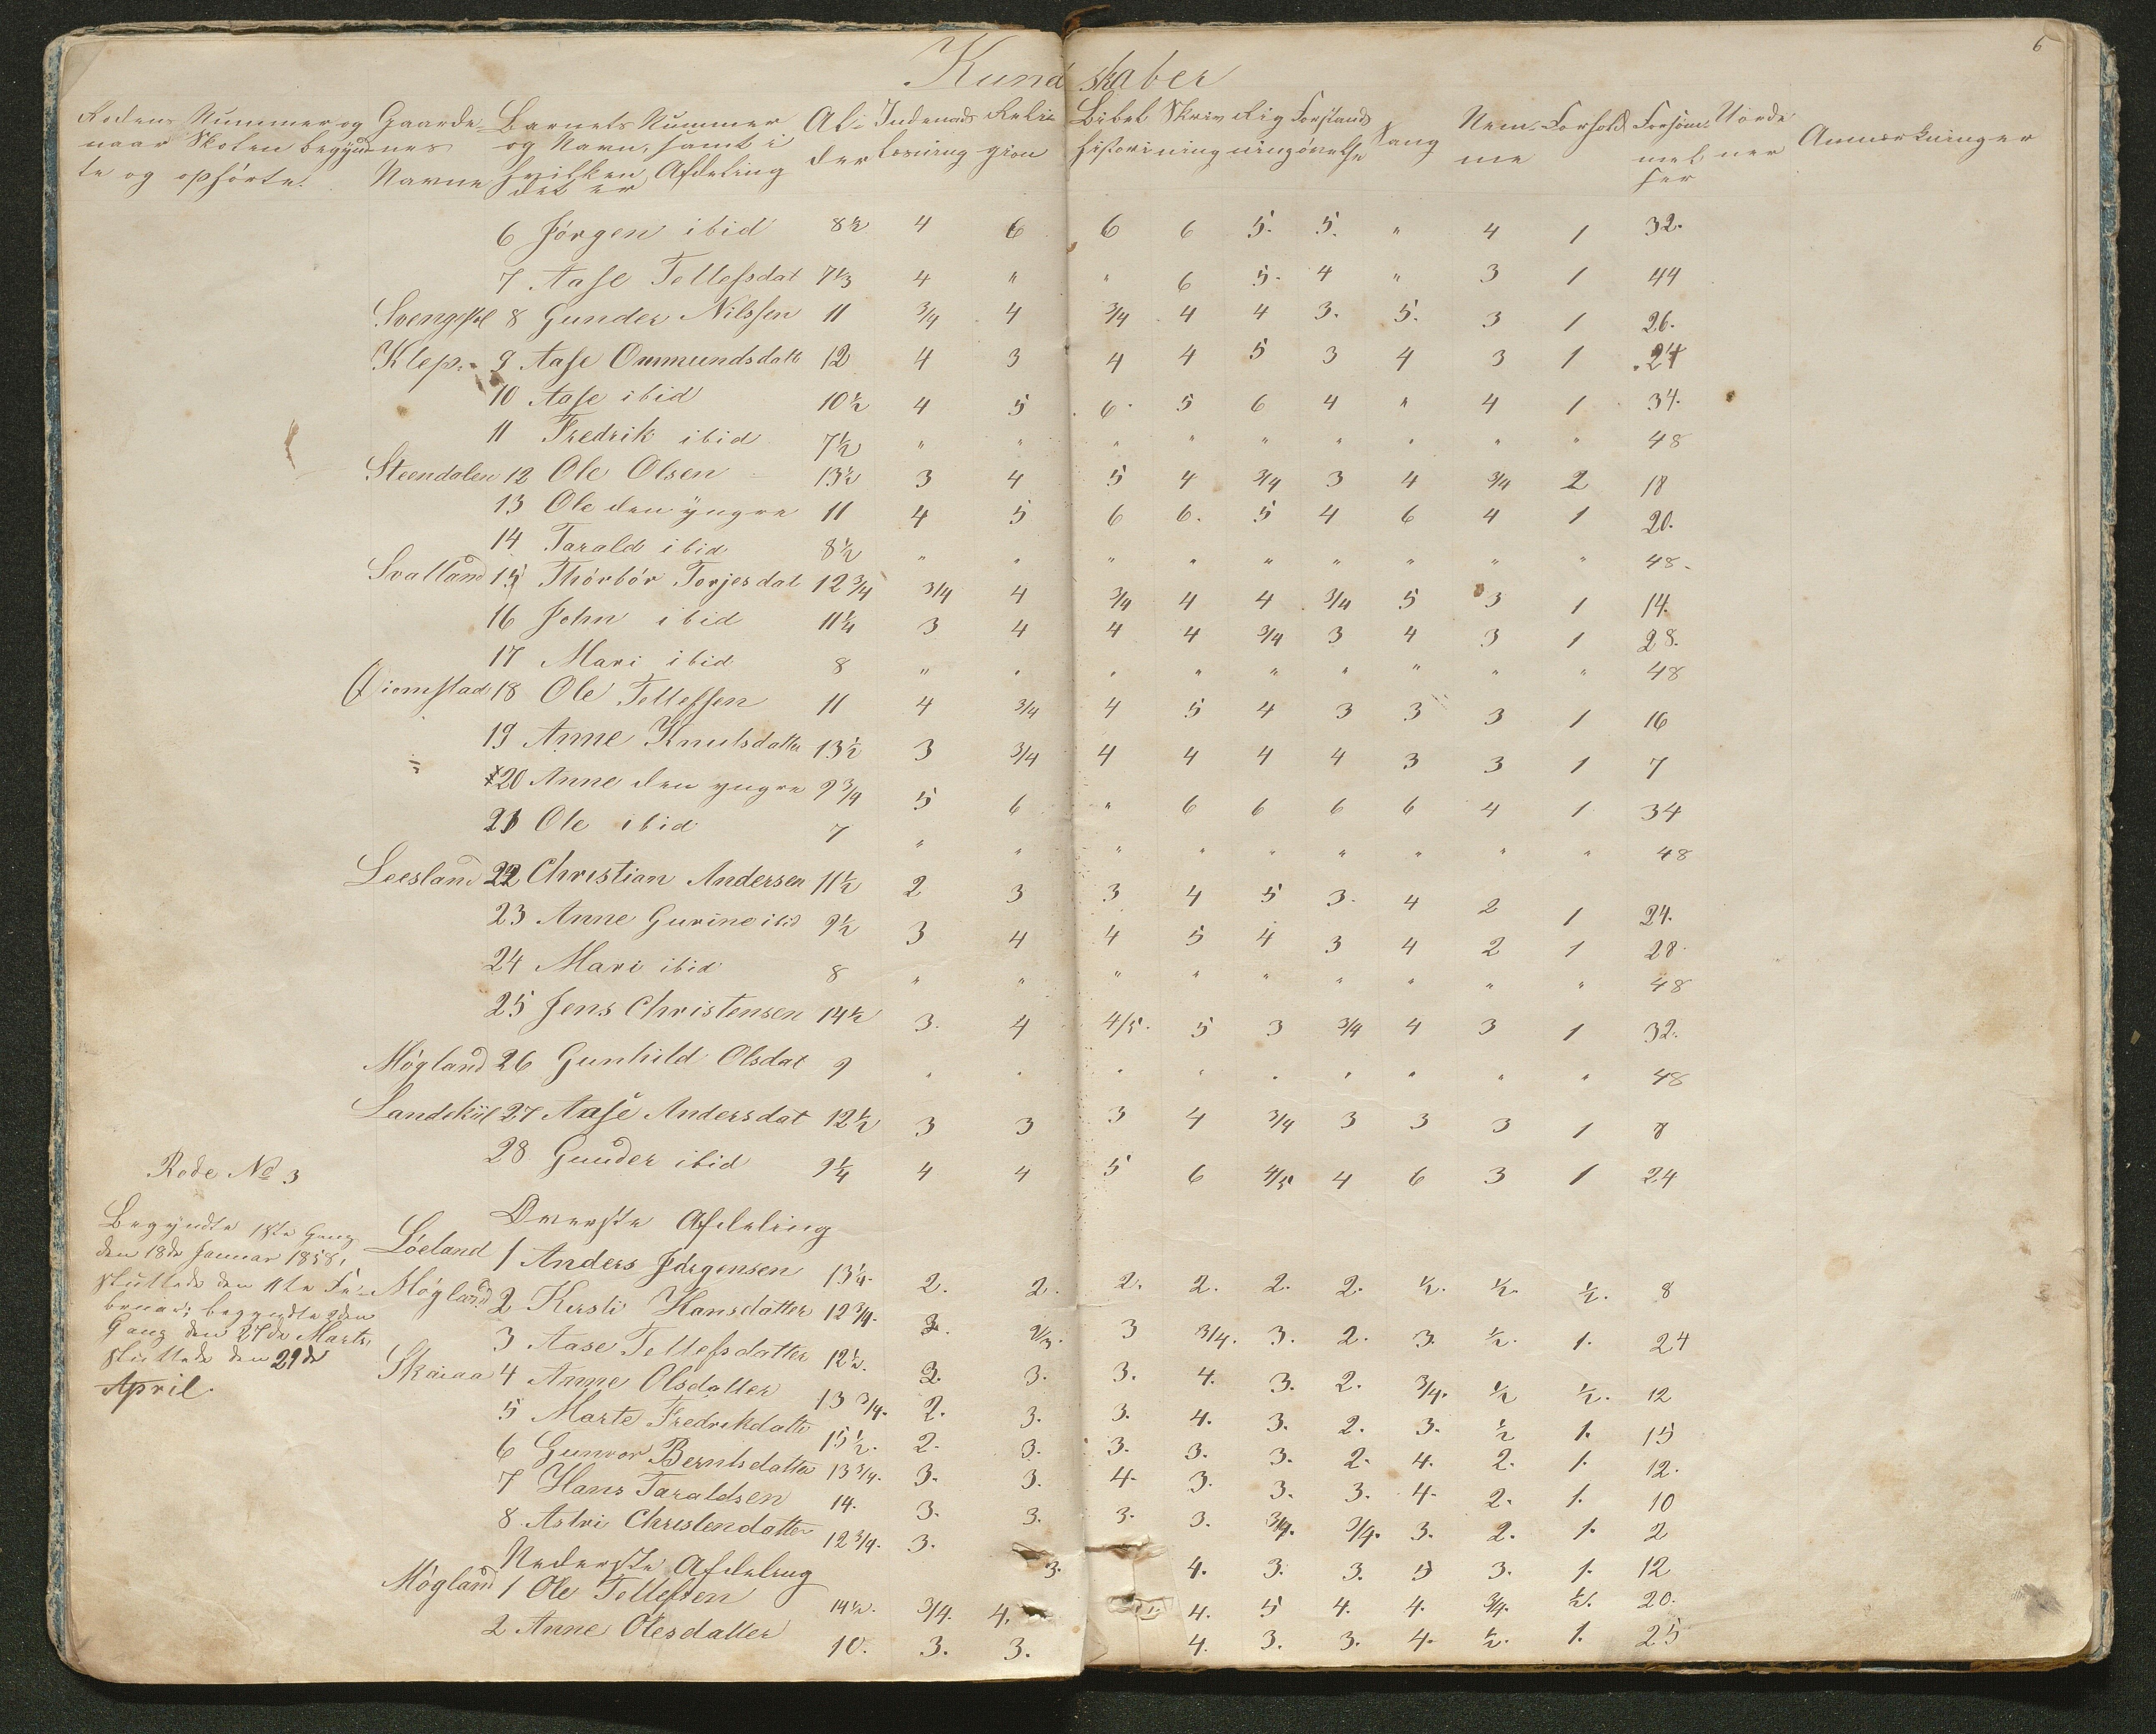 6
Kundskaber
Rodens Nummer og naar Skolen begyndte og ophørte. Gaardenes Navne Barnets Nummer og Navn, samt i hvilken Afdeling det er Alder Indenads Læsning Religion Bibelhistori Skrivning Rigning Forstandsøvelse Sang Nemme Forhold Forsømmelser Anmærkninger
6 Jørgen ibid 8½ 4 6 6 6 5. 5. " 4 1 32.
7 Aase Tellefsdat 7⅓ 4 " " 6 5. 4 " 3 1 44
8 Gunder Nilssen 11 3/4 4 3/4 4 4 3. 5. 3 1 26.
Klep. 9 Aase Ommundsdatt 12 4 3 4 4 5 3 4 3 1 24
10 Aase ibid 10½ 4 5 6. 5 6 4 " 4 1 34.
11 Fredrik ibid 7½ " " " " " " " " " 48
Steendalen 12 Ole Olsen 13½ 3 4 5 4 3/4 3 4 3/4 2 18
13 Ole den yngre 11 4 5 6 6. 5 4 6 4 1 20.
14 Tarald ibid 8½ " " " " " " " " " 48.
Svalland 15 Thórbór Torjesdat 12 3/4 3/4 4 3/4 4 4 3/4 5 3 1 14.
16 John ibid 11¼ 3 4 4 4 3/4 3 4 3 1 28.
17 Mari ibid 8 " " " " " " " " " 48
18 Ole Tellefsen 11 4 3/4 4 5 4 3 3 3 1 16
19 Anne Knutsdatter 13½ 3 3/4 4 4 4 4 3 3 1 7
20 Anne den yngre 9 3/4 5 6 " 6 6 6 6 4 1 34
21 Ole ibid 7 " " " " " " " " " 48
Leesland 22 Christian Andersen 11½ 2 3 3 4 5 3. 4 2 1 24.
23 Anne Gurine ibid 9½ 3 4 4 5 4 3 4 2 1 28.
24 Mari ibid 8 " " " " " " " " " 48
25 Jens Christensen 14½ 3. 4 4/5. 5 3 3/4 4 3 1 32.
Mógland 26 Gunhild Olsdat 9 " " " " " " " " " 48
Landekiil 27 Aase Andersdat 12½ 3 3 3 4 3/4 3 3 3 1 8
28 Gunder ibid 9¼ 4 4 5 6 4/5 4 6 3 1 24
Rode No 3
Begyndte 1ste Gang
den 18de Januar 1858,
sluttede den 11te Fe-
bruar; begyndte 2den
Gang den 27de Marts,
sluttede den 29de
April.
Øverste Afdeling
Lóeland 1 Anders Jórgensen 13¼. 2. 2. 2. 2. 2. 2. ½. ½. ½. 8
Mógland 2 Kirsti Hansdatter 12 3/4. 2. 2/3. 3 3/4. 3. 2. 3. ½. 1. 24
3 Aase Tellefsdatter 12½. 2. 3. 3. 4. 3. 2. 3/4. ½ ½. 12
Skaiaa 4 Anne Olsdatter 13 3/4. 2. 3. 3. 4. 3. 2. 3. ½ 1. 15
5 Marte Fredrikdatter 15½. 2. 3. 3. 3. 3. 2. 4. 2. 1. 12.
6 Gunvor Berntsdatter 13 3/4. 3. 3. 4. 3. 3. 3. 4. 2. 1. 10
7 Hans Taraldsen 14. 3. 3. 3. 3. 3/4. 3/4. 3. 2. 1. 2
8 Astri Christendatter 12 3/4. 3. 3. 4. 3. 3. 5 3. 1. 12
Nederste Afdeling
Mógland 1 Ole Tellefsen 14½. 3/4. 4. 4. 5 4. 4. 3/4. ½. 20.
2 Anne Olesdatter 10. 3. 3. 4. 3. 3. 4. ½. 1. 25